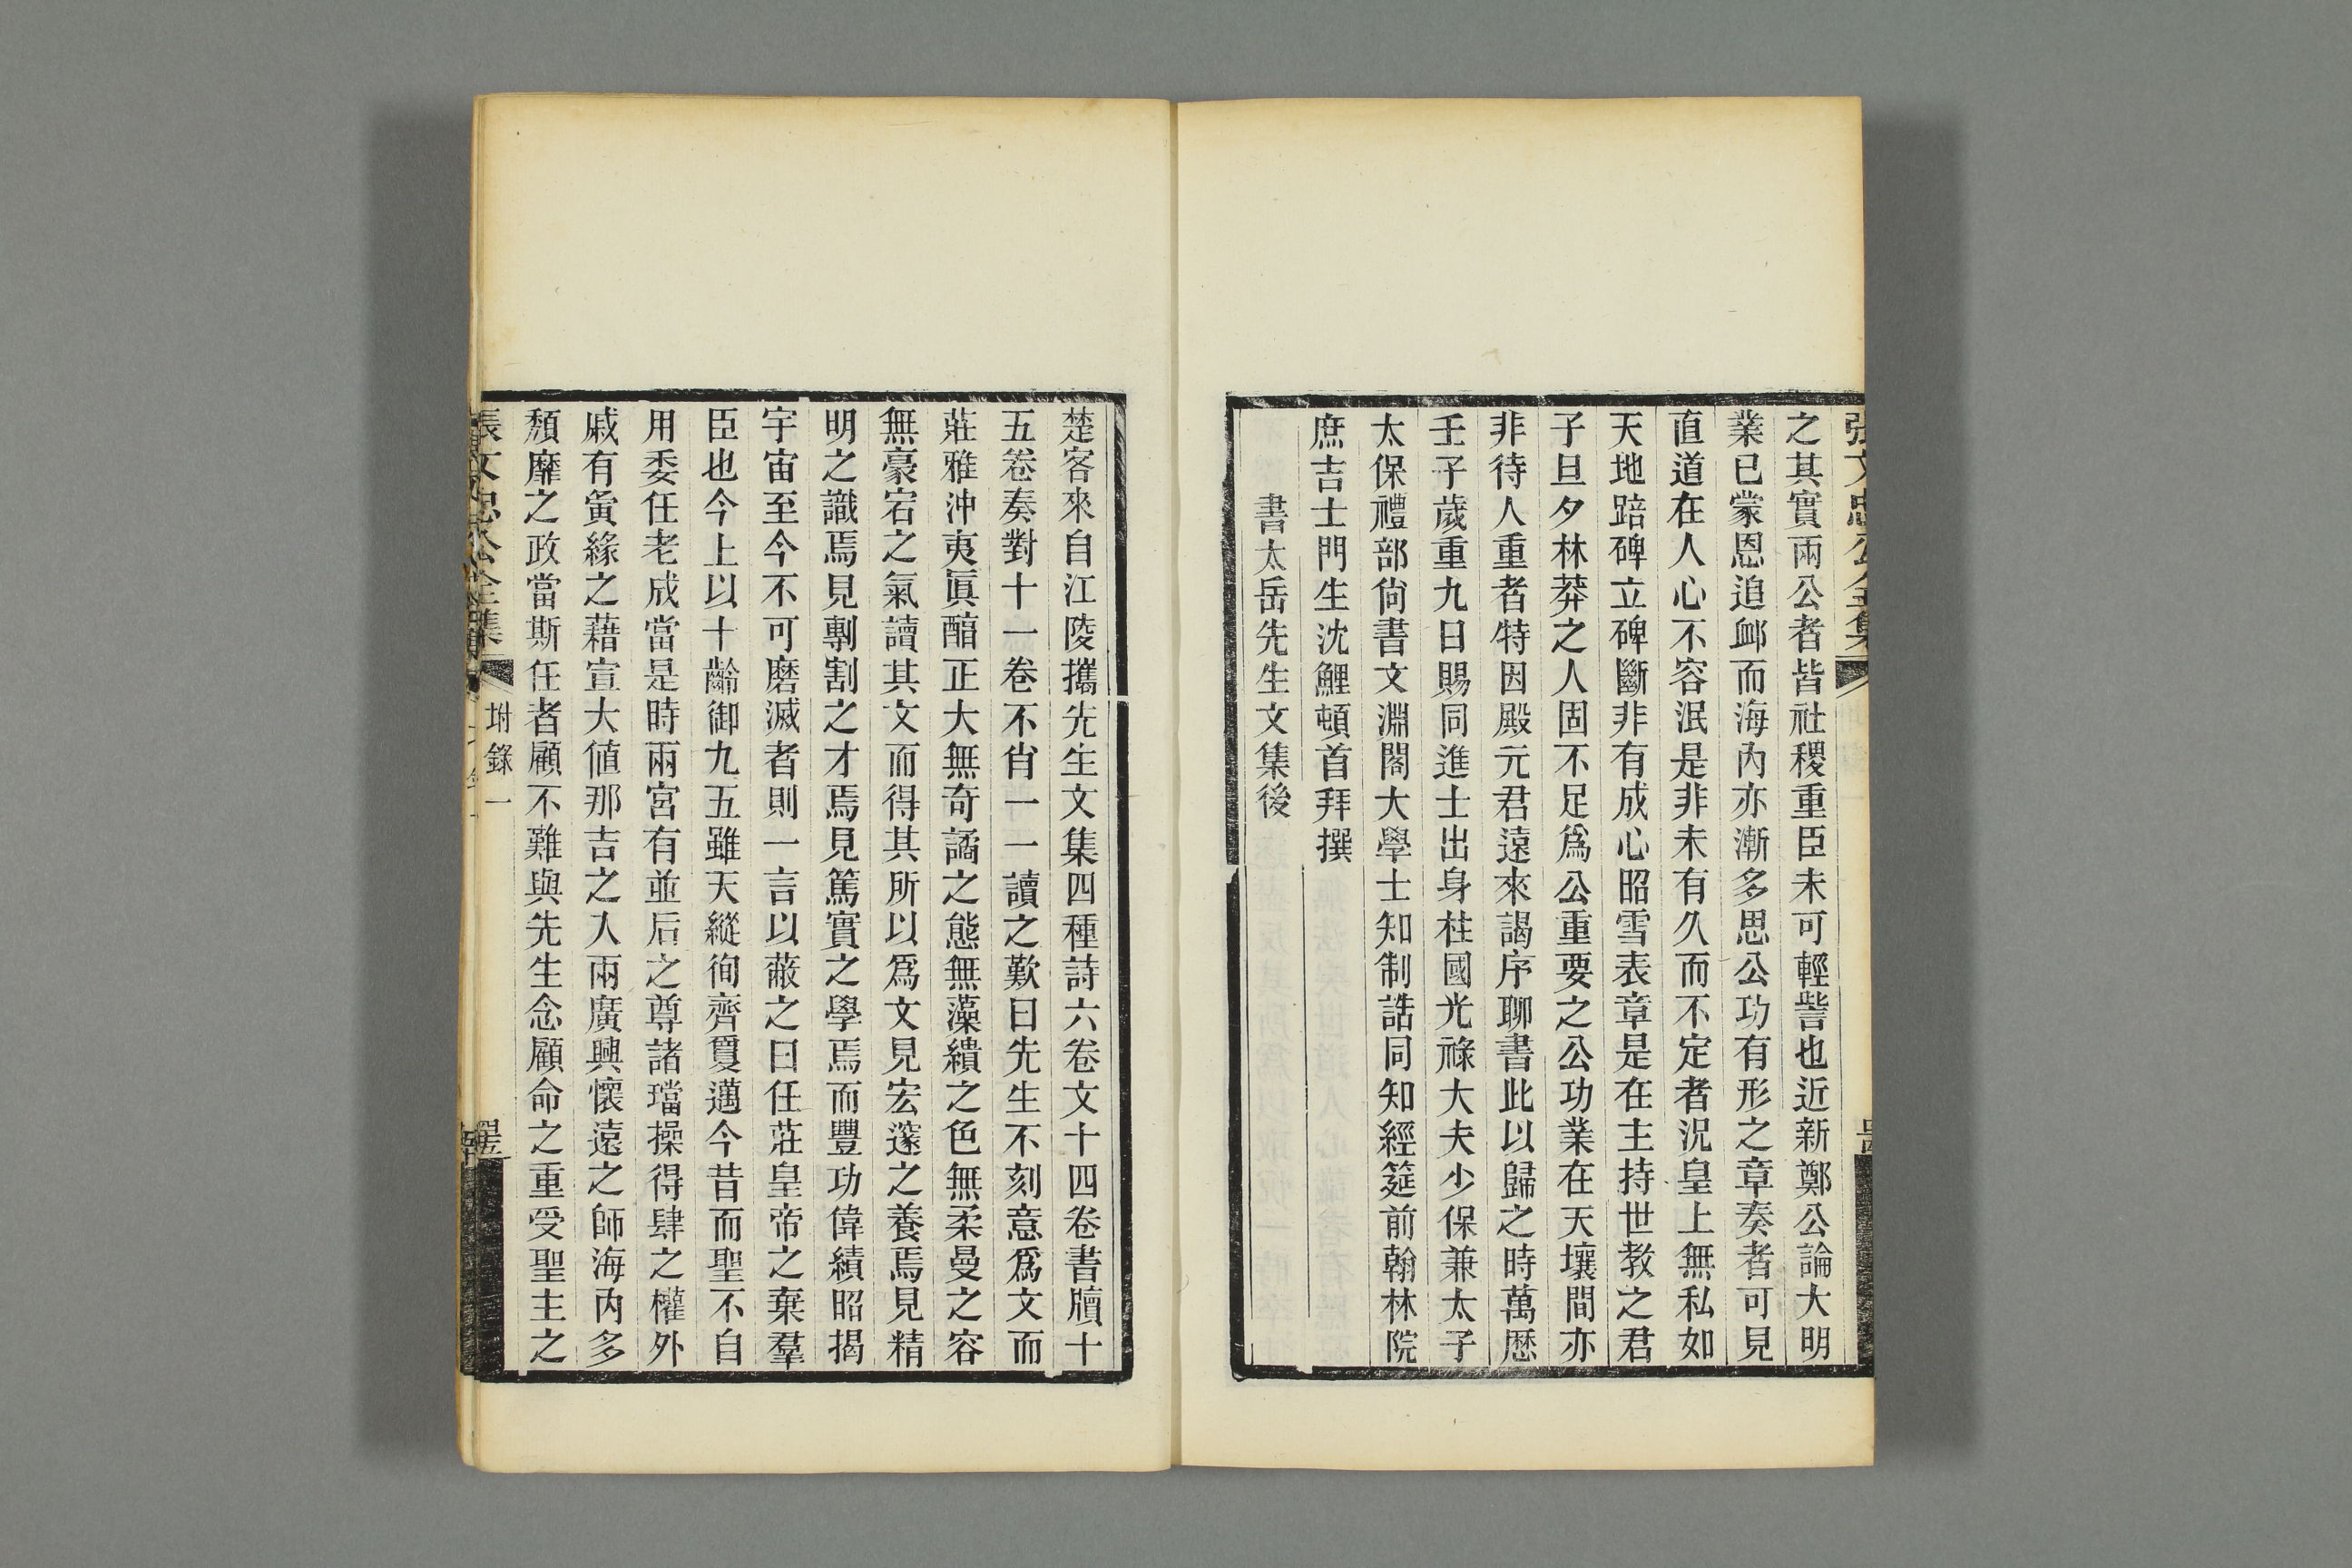 張文忠公全集
之其實兩公者皆社稷重臣未可輕訾也近新鄭公論大明
業已蒙恩追卹而海內亦漸多思公功有形之章奏者可見
直道在人心不容泯是非未有久而不定者況皇上無私如
天地踣碑立碑斷非有成心昭雪表章是在主持世教之君
子旦夕林莽之人固不足爲公重要之公功業在天壤間亦
非待人重者特因殿元君遠來謁序聊書此以歸之時萬歷
壬子歲重九日賜同進士出身柱國光祿大夫少保兼太子
太保禮部尙書文淵閣大學士知制誥同知經筵前翰林院
庶吉士門生沈鯉頓首拜撰
書太岳先生文集後
楚客來自江陵攜先生文集四種詩六卷文十四卷書牘十
五卷奏對十一卷不肖一一讀之歎曰先生不刻意爲文而
莊雅沖夷眞醇正大無奇譎之態無藻繢之色無柔曼之容
無豪宕之氣讀其文而得其所以爲文見宏邃之養焉見精
明之識焉見剸割之才焉見篤實之學焉而豐功偉績昭揭
宇宙至今不可磨滅者則一言以蔽之曰任莊皇帝之棄羣
臣也今上以十齡御九五雖天縱徇齊敻邁今昔而聖不自
用委任老成當是時兩宮有並后之尊諸璫操得肆之權外
戚有夤緣之藉宣大値那吉之入兩廣興懷遠之師海內多
頹靡之政當斯任者顧不難與先生念顧命之重受聖主之
張文忠公全集 坿錄一